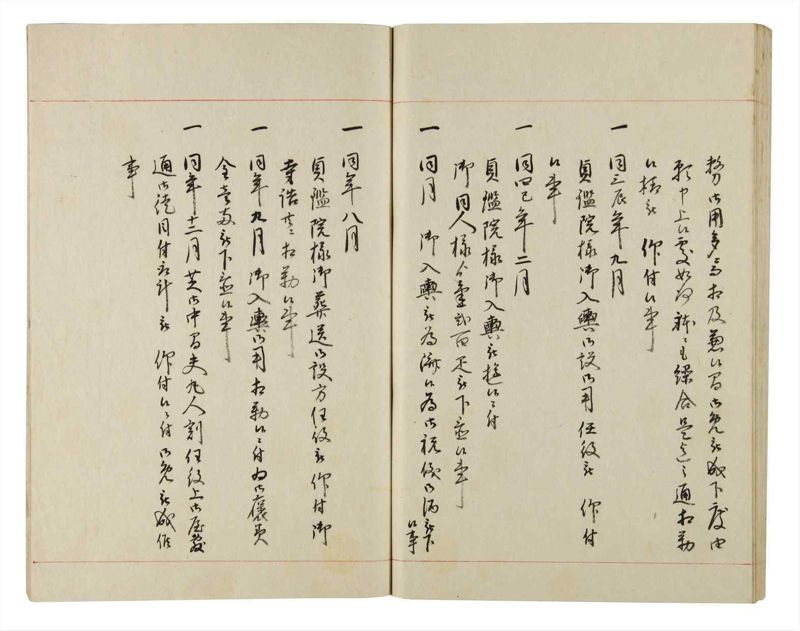 勢御用多ニ而相及兼候間御免被成下度由
願申上候処如何様ニも繰合是迄之通相勤
候様被 仰付候事
一 同三辰年九月
貞鑑院様御入輿御設御用任役被 仰付
候事
一 同四巳年二月
貞鑑院様御入輿被遊候ニ付
御同人様ゟ金弐百疋被下置候事
一 同月 御入輿被為済候為御祝儀御酒被下
候事
一 同年八月
貞鑑院様御葬送御設方任役被 仰付御
寺詰共相勤候事
一 同年九月 御入輿御用相勤候ニ付為御褒美
金壱両被下置候事
一 同年十二月 芝御中間夫丸人割任役上御屋敷
通御徒目付衆計被 仰付候ニ付御免被成候
事